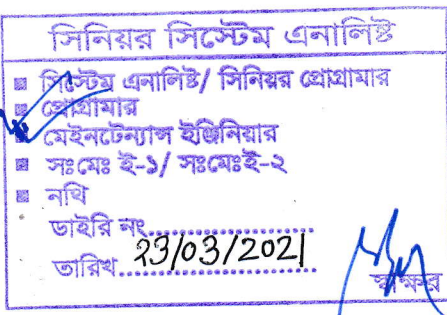 সিনিয়র সিস্টেম এনালিষ্ট
সিস্টেম এনালিষ্ট/ সিনিয়র প্রোগ্রামার
প্রোগ্রামার
মেইনটেন্যান্স ইঞ্জিনিয়ার
সঃমেঃ ই-১/ সঃমেঃই-২
নথি
ডাইরি নং..................
তারিখ..23/03/2021
স্বাক্ষর